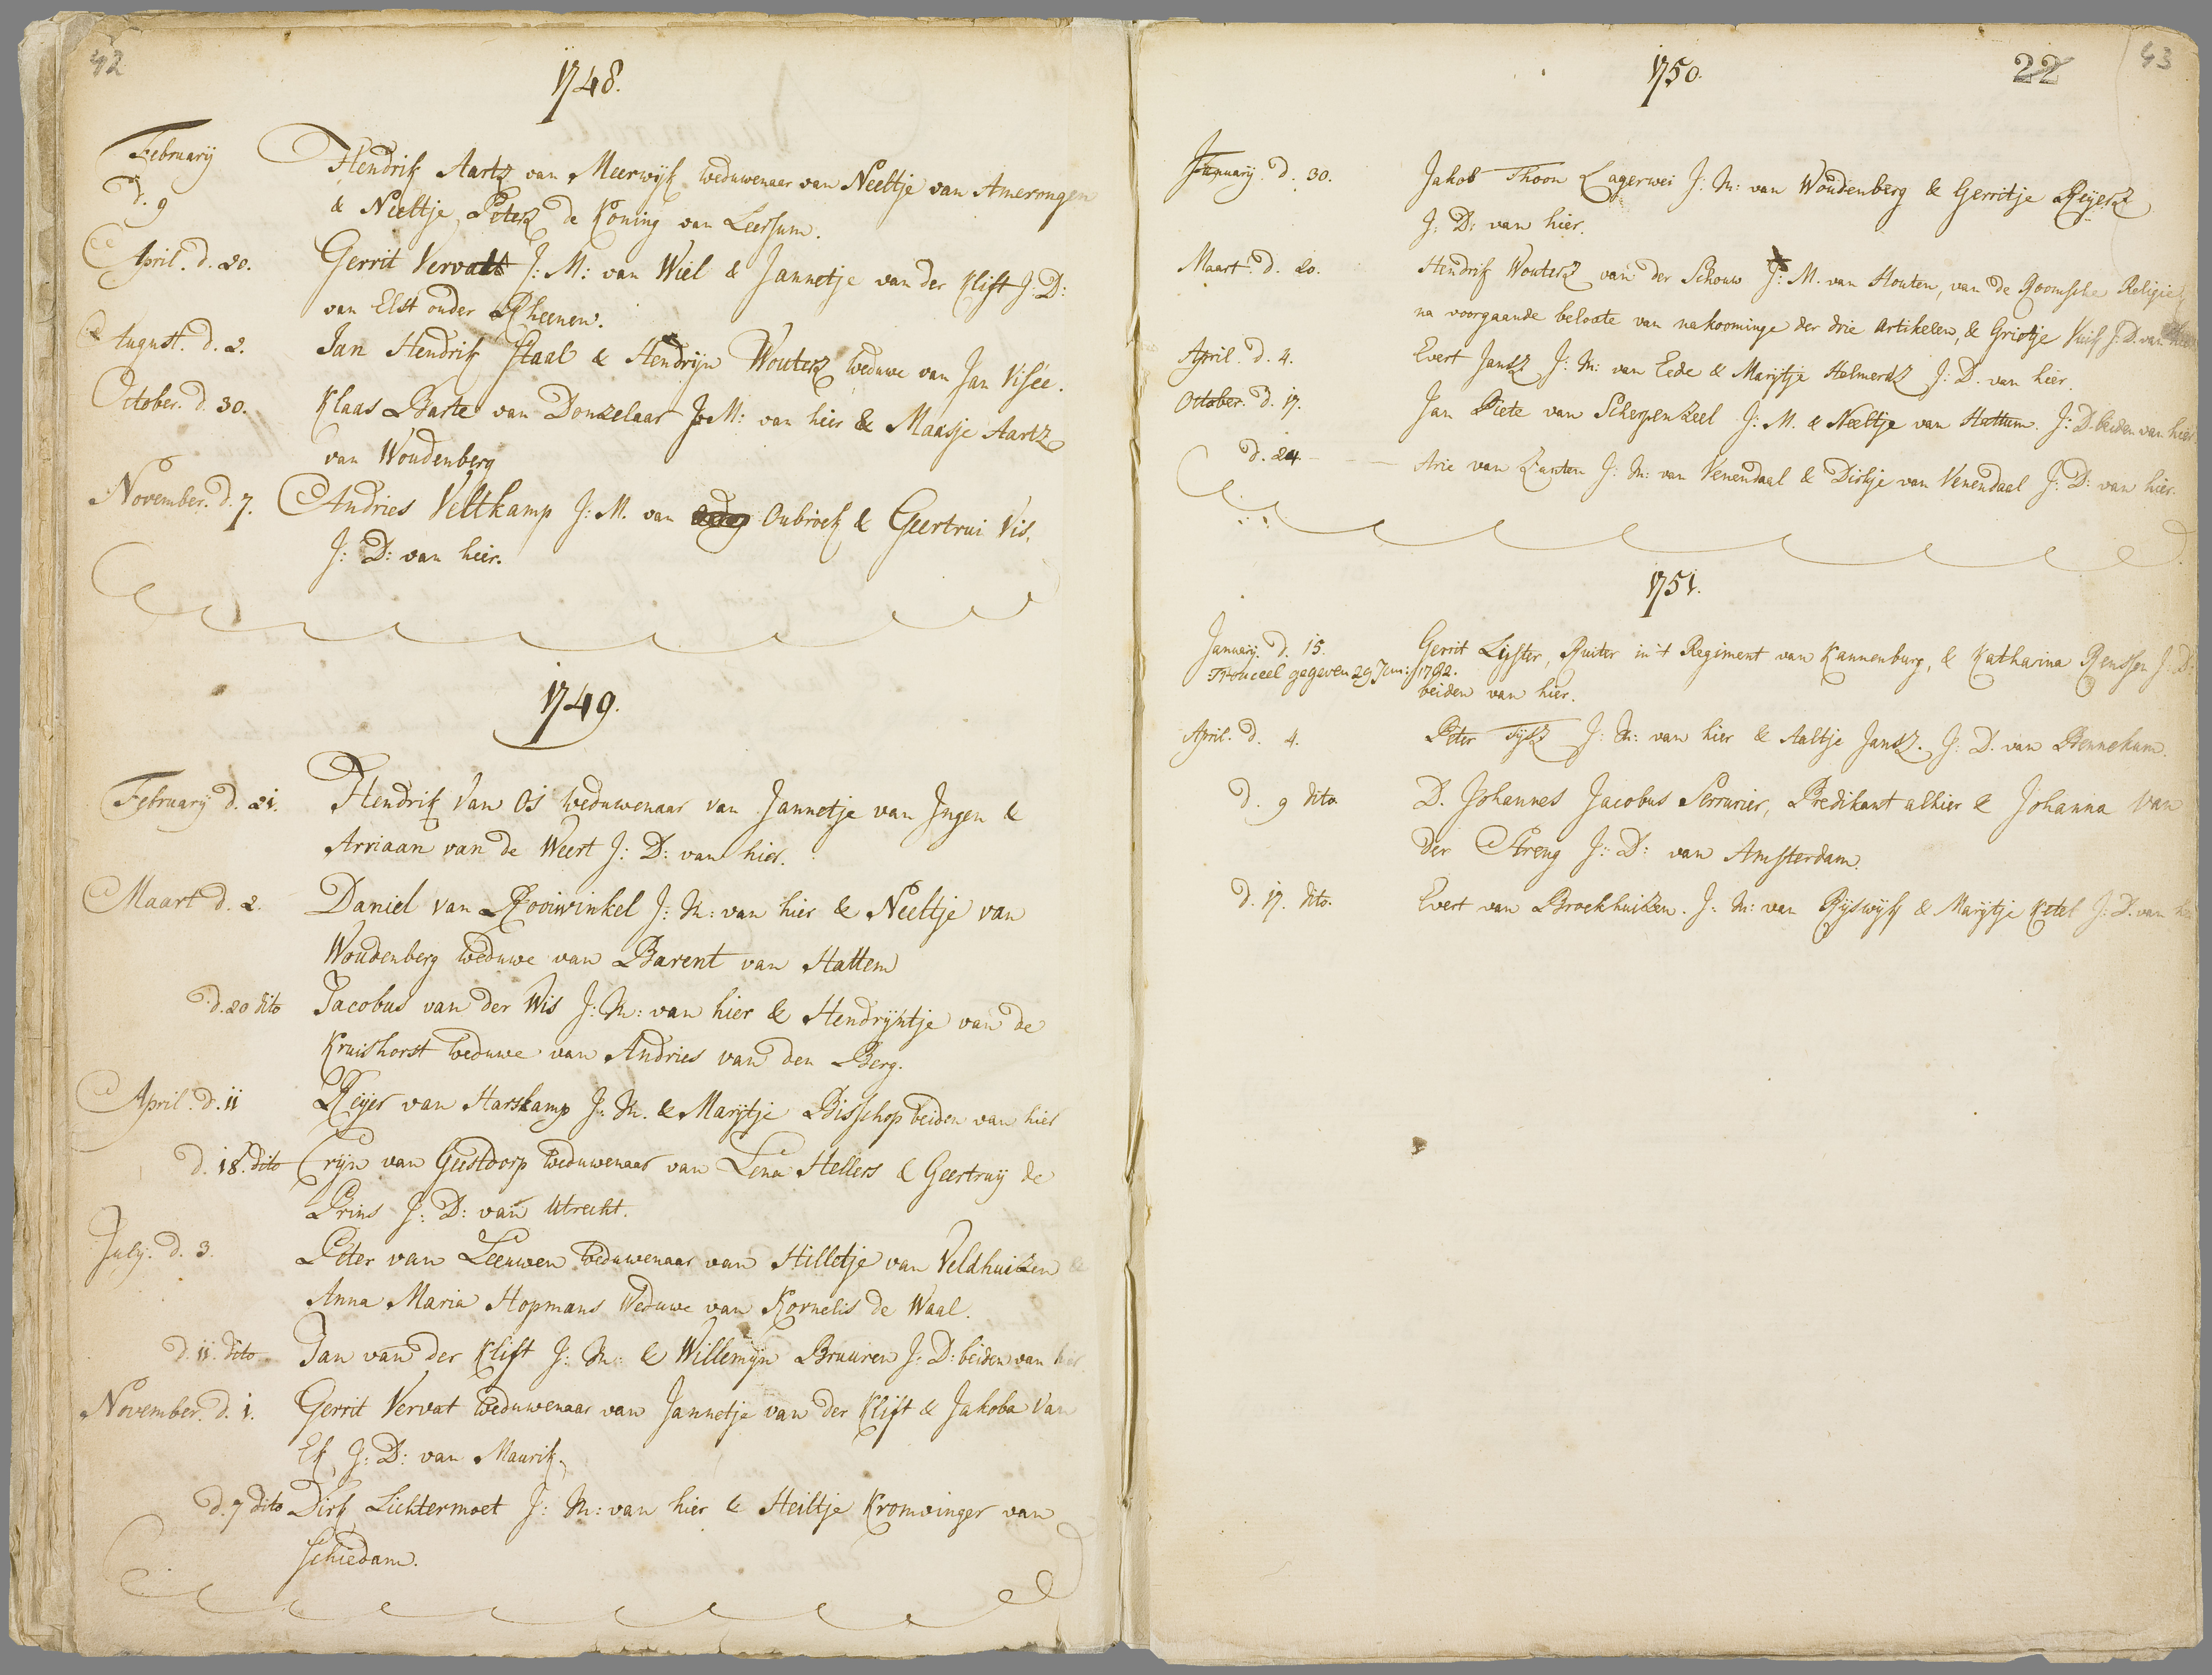 42
1748.
February
d. 9
Hendrik Aartz van Meerwijk weduwenaer van Neeltje van Amerongen
& Neeltje Peterz de Koning van Leersum.
April. d. 20.
Gerrit Vervatt J: M: van Wiel & Jannetje van der Klift J: D:
van Elst onder Rheenen.
August. d. 2.
Jan Hendrik Staal & Hendrijn Wouterz weduwe van Jan Visée.
October. d. 30.
Klaas Barte van Donzelaar J: M: van hier & Maasje Aartz
van Woudenberg
November. d. 7.
Andries Veltkamp J: M. van Oubroek & Geertrui Vis,
J: D: van hier.
1749.
February d. 21.
Hendrik van Os weduwenaar van Jannetje van Ingen &
Arriaan van de Weert J: D: van hier.
Maart d. 2.
Daniel van Rooiwinkel J: M: van hier & Neeltje van
Woudenberg weduwe van Barent van Hattem
d. 20 dito
Jacobus van der Wis J: M: van hier & Hendrijntje van de
Kruishorst weduwe van Andries van den Berg.
April. d. 11
Reijer van Harskamp J: M. & Marijtje Bisschop beiden van hier
d. 18. dito
Crijn van Geestdorp weduwenaar van Lena Hellers & Geertruy de
Prins J: D: van Utrecht.
July. d. 3.
Peter van Leeuwen weduwenaar van Hilletje van Veldhuizen &
Anna Maria Hopmans weduwe van Kornelis de Waal.
d. 11. dito
Jan van der Klift J: M: & Willemijn Bruuren J: D: beiden van hier
November. d. 1.
Gerrit Vervat weduwenaar van Jannetje van der Klift & Jakoba van
Ek J: D: van Maurik.
d. 7 dito
Dirk Lichtermoet J: M: van hier & Heiltje Kromvinger van
Schiedam.
1750.
22
43
January. d. 30.
Jakob Thoon Lagerwei J: M: van Woudenberg & Gerritje Reijerz
J: D: van hier.
Maart. d. 20.
Hendrik Wouterz van der Schouw J: M. van Houten, van de Roomsche Religie
na voorgaande belofte van nakoominge der drie artikelen, & Grietje Kuik J: D. van
April. d. 4.
Evert Jansz J: M: van Eede & Marijtje Helmertz J: D. van hier.
October. d. 17.
Jan Piete van Scherpenzeel J: M. & Neeltje van Hattum. J: D. beiden van hier.
d. 24
Arie van Zanten J: M: van Venendaal & Dirkje van Venendaal J: D: van hier.
1751.
January. d. 15.
Gerrit Lijster, Ruiter in 't Regiment van Kannenburg, & Katharina Renssen J: D:
Trouceel gegeven 29 Jun: 1792.
beiden van hier.
April. d. 4.
Peter Tijsz J: M: van hier & Aaltje Jansz. J: D. van Bennekum.
d. 9 dito
D. Johannes Jacobus Serrurier, Predikant alhier & Johanna van
der Streng J: D: van Amsterdam.
d. 17. dito.
Evert van Broekhuizen. J: M: van Rijswijk & Marijtje Ketel J: D. van hier